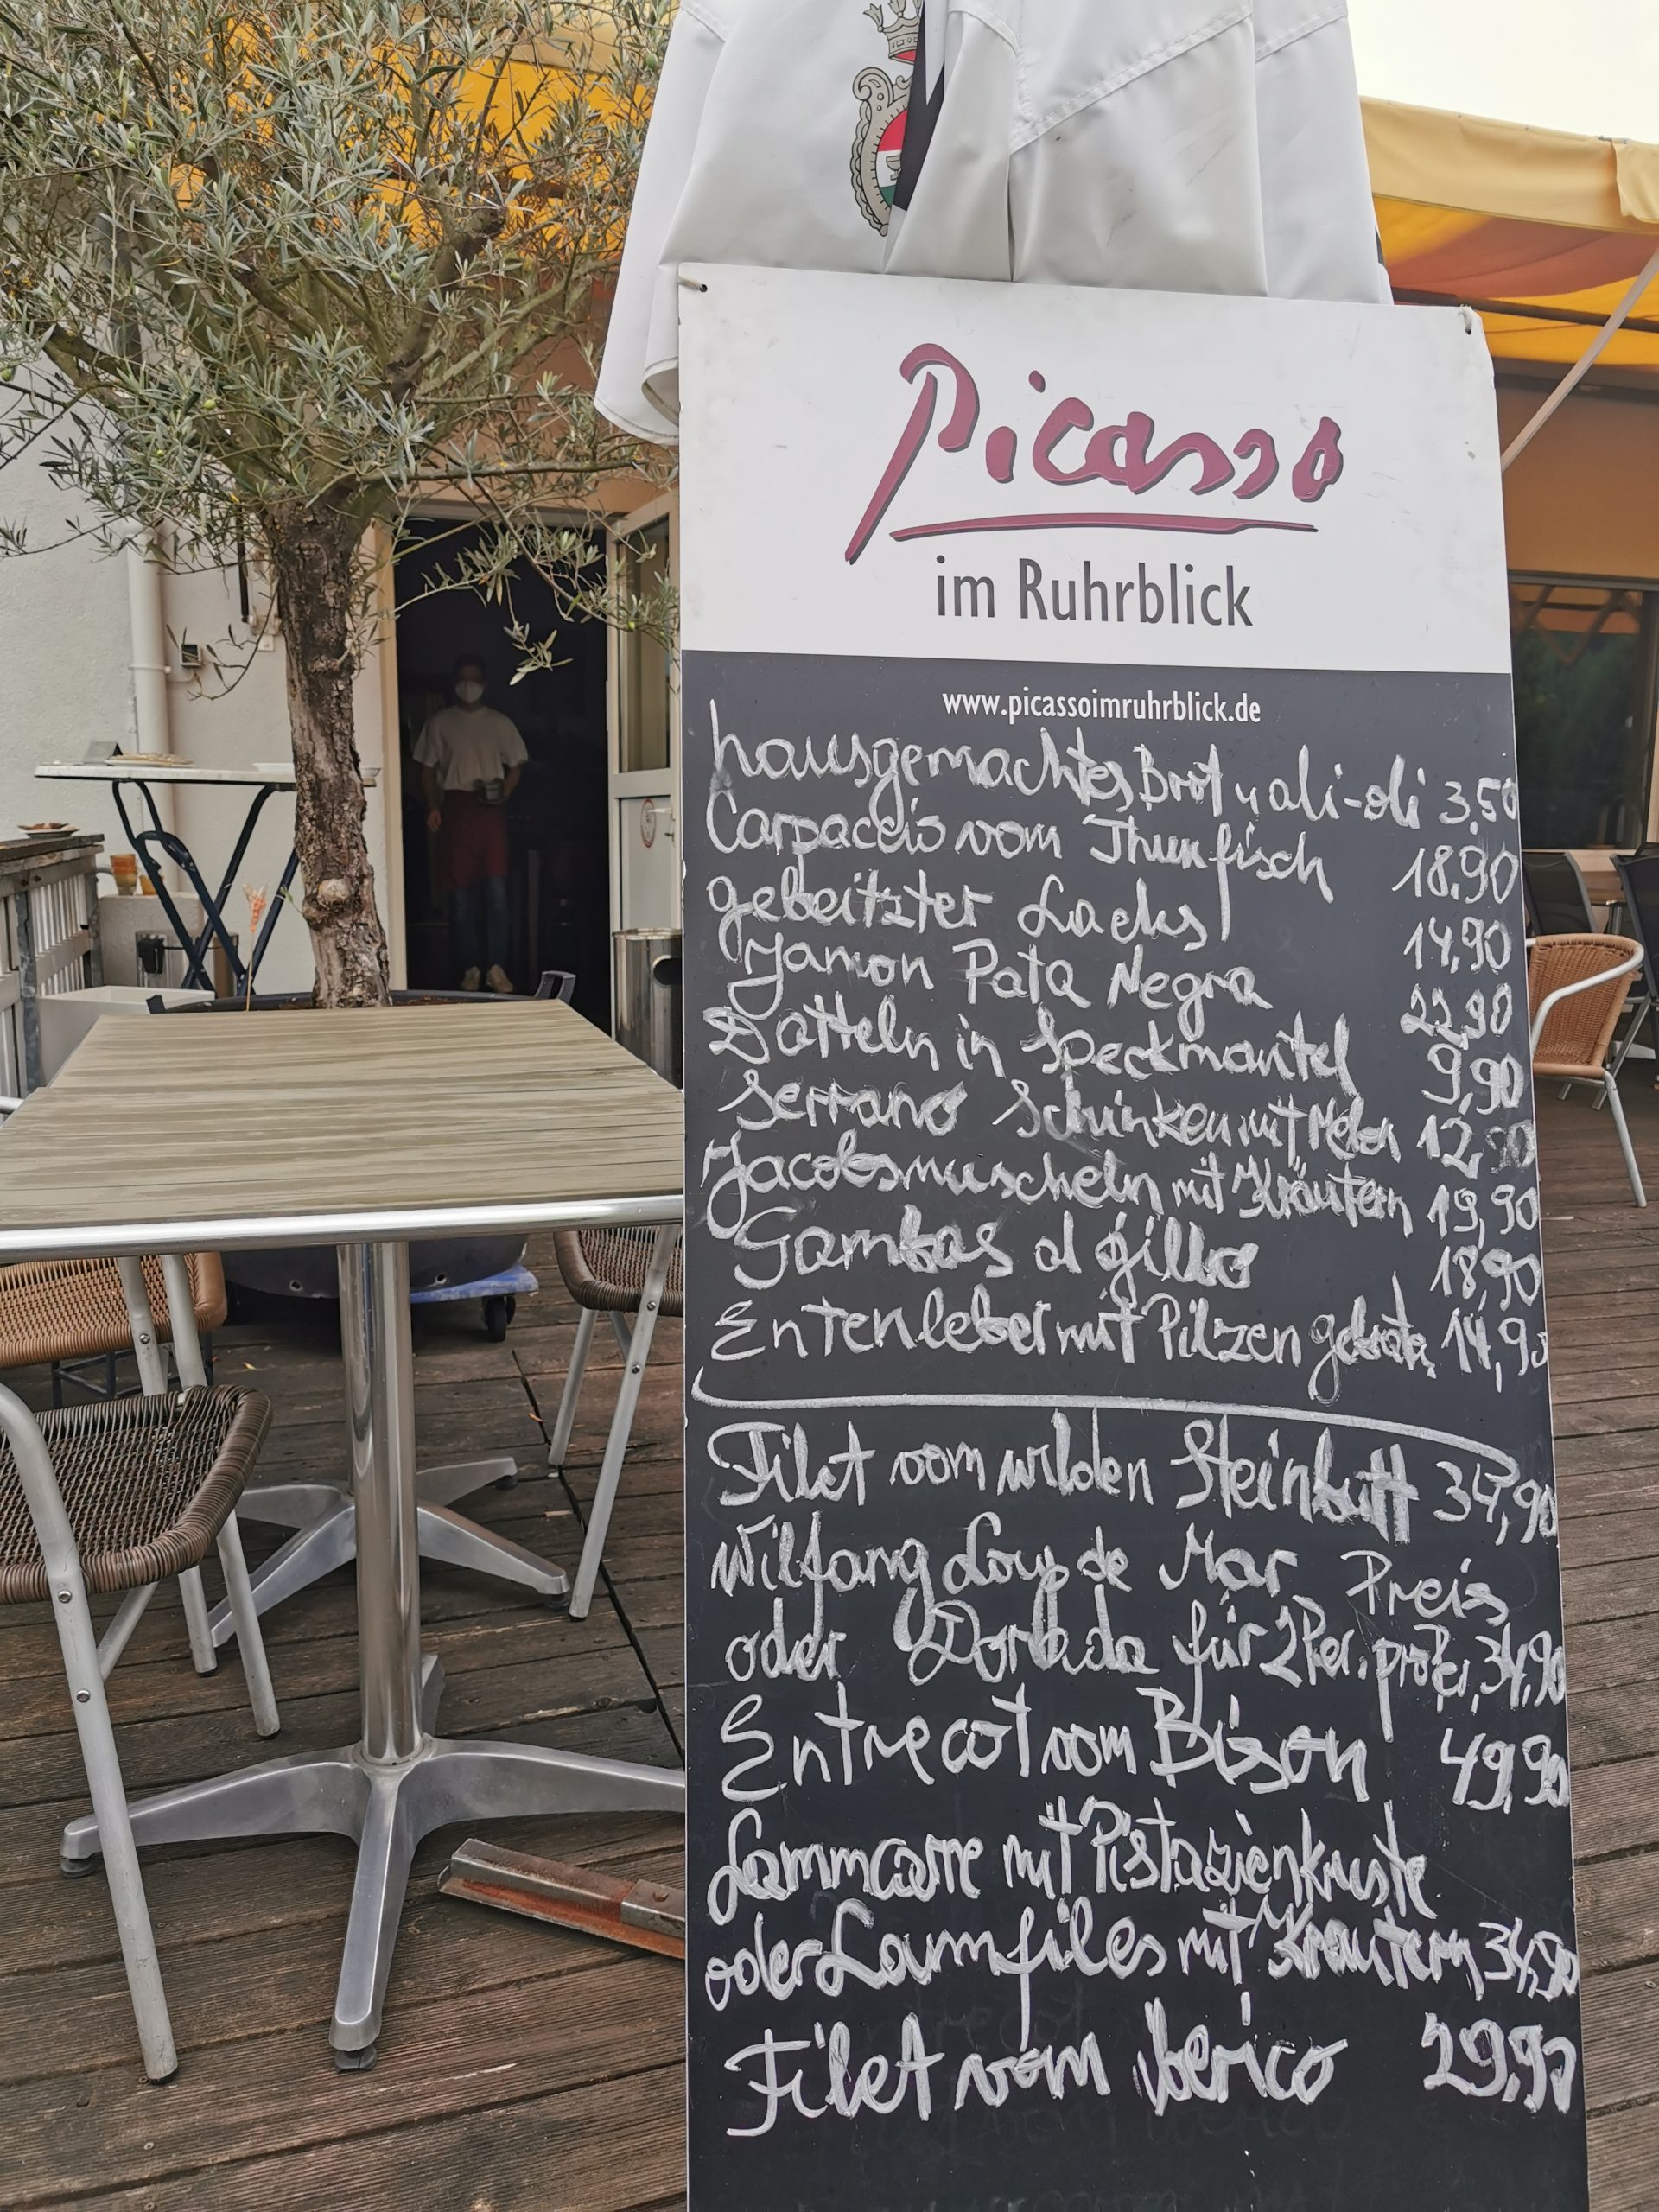 Picasso
im Ruhrblick
www.picassoimruhrblick.de
hausgemachtes Brot u ali-oli 3,50
Carpaccio vom Thunfisch 18,90
gebeitzter Lachs 14,90
Jamon Pata Negra 22,90
Datteln in Speckmantel 9,90
Serrano Schinken mit Melon 12,
Jacobsmuscheln mit Kräutern 19,90
Gambas al gillo 18,90
Entenleber mit Pilzen 14,90
Filet vom wilden Steinbutt 34,90
Wilfang Loup de Mar Preis
oder Dorada für 2 Per. pro 34,90
Entrecot vom Bison 49,90
Lammcarre mit Pistazienkruste
oder Lamfiles mit Kräutern 34,90
Filet vom Iberico 29,90